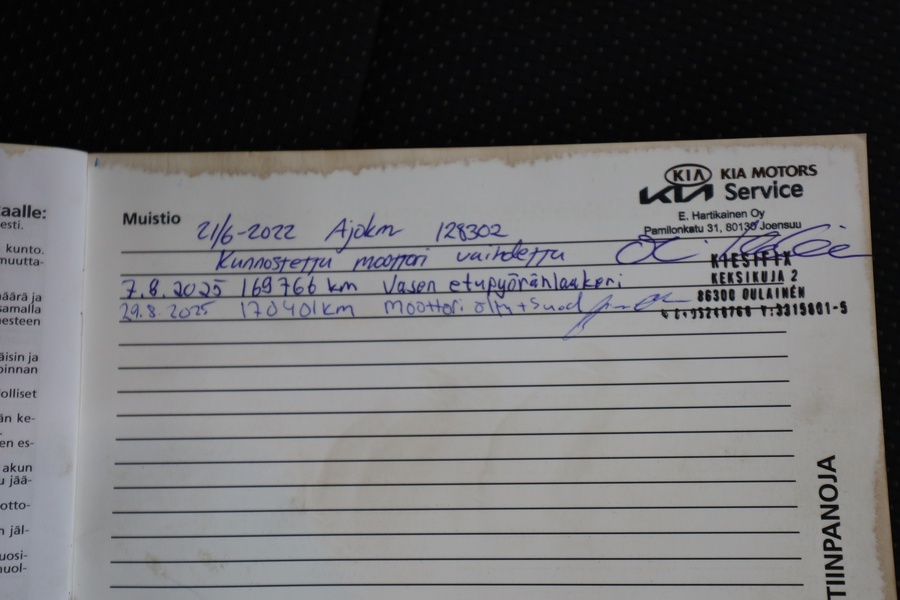 aalle:
esti.
kunto.
muutta-
määrä ja
samalla
nesteen
äisin ja
pinnan
olliset
än ke-
en es-
akun
u jää-
otto-
n jäl-
uosi-
nuol-
KIA KIA MOTORS
KIA Service
E. Hartikainen Oy
Pamilonkatu 31, 80130 Joensuu
Muistio
21/6-2022 Ajokm 128302
Kunnostettu moottori vaihdettu
7.8.2025 169766 km Vasen etupyöränlaakeri
29.8.2025 170401km Moottori öljy+suod
KIESIFIX
KEKSIKUJA 2
86300 OULAINEN
TIINPANOJA